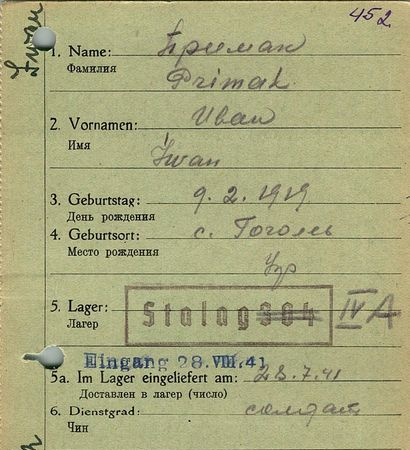 452
1. Name: Примак
Фамилия
Primak
2. Vornamen: Иван
Имя
Iwan
3. Geburtstag: 9. 2. 1919
День рождения
4. Geburtsort: с. Гоголь
Место рождения
5. Lager: Stalag 304 IV A
Лагер
Eingang 28. VIII. 41
5a. Im Lager eingeliefert am: 28.7.41
Доставлен в лагер (число)
6. Dienstgrad: солдат
Чин
Iwan